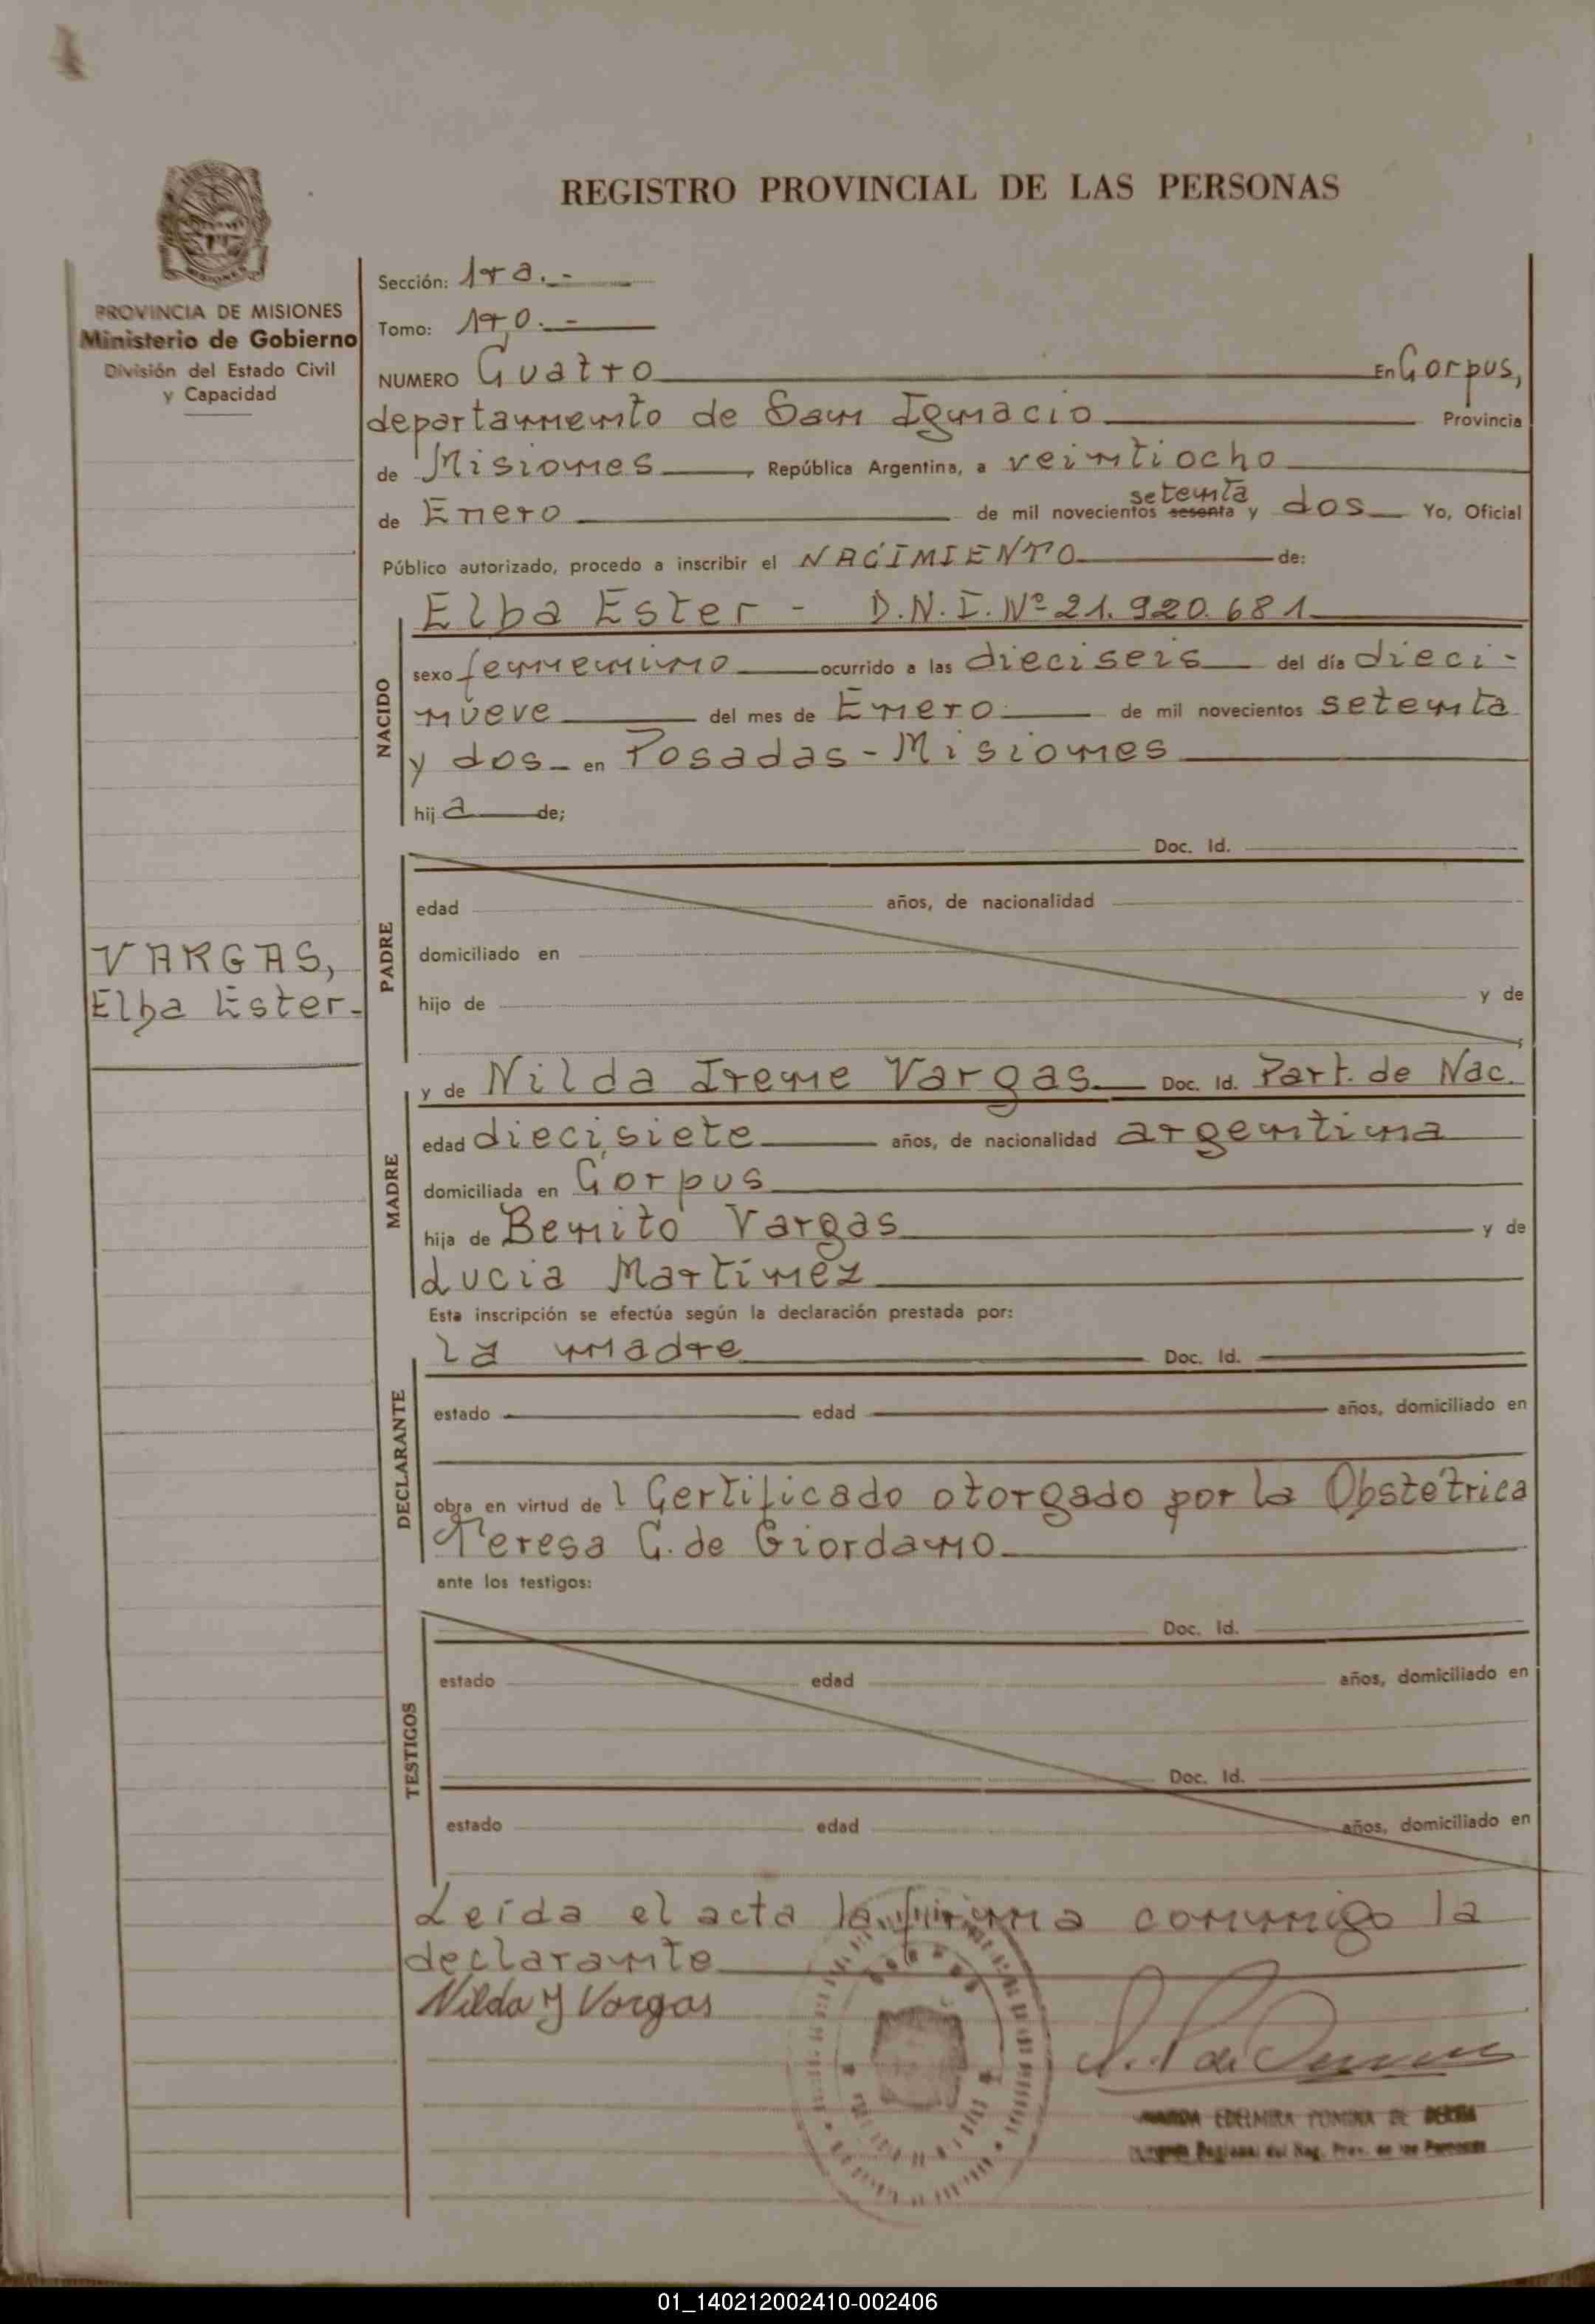 REGISTRO PROVINCIAL DE LAS PERSONAS
MISIONES
PROVINCIA DE MISIONES
Ministerio de Gobierno
División del Estado Civil
y Capacidad
Sección: 1ra.-
Tomo: 1ro.-
NUMERO Cuatro En Corpus,
departamento de San Ignacio Provincia
de Misiones, República Argentina, a veintiocho
de Enero de mil novecientos sesenta setenta y dos Yo, Oficial
Público autorizado, procedo a inscribir el NACIMIENTO de:
Elba Ester - D.N.I. Nº 21.920.681
NACIDO
sexo femenino ocurrido a las dieciseis del día dieci-
nueve del mes de Enero de mil novecientos setenta
y dos en Posadas - Misiones
hija de;
VARGAS,
Elba Ester-
PADRE
Doc. Id.
edad años, de nacionalidad
domiciliado en
hijo de y de
MADRE
y de Nilda Irene Vargas Doc. Id. Part. de Nac.
edad diecisiete años, de nacionalidad argentina
domiciliada en Corpus
hija de Benito Vargas y de
Lucia Martínez
Esta inscripción se efectúa según la declaración prestada por:
DECLARANTE
la madre Doc. Id.
estado edad años, domiciliado en
obra en virtud del Certificado otorgado por la Obstétrica
Teresa C. de Giordano
ante los testigos:
TESTIGOS
Doc. Id.
estado edad años, domiciliado en
Doc. Id.
estado edad años, domiciliado en
Leída el acta la firma conmigo la
declarante
Nilda Y Vargas
EDELMIRA DE
Regional del Reg. Prov. de las Personas
01_140212002410-002406